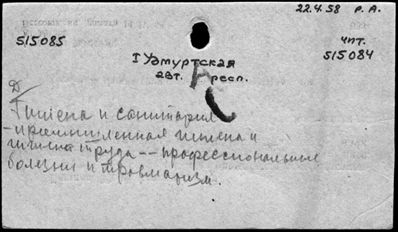 22.4.58 Р.А.
515085
ЧПТ.
515084
I Удмуртская
авт. респ.
Д
Гигиена и санитария
-промышленная гигиена и
гигиена труда--профессиональные
болезни и травматизм.